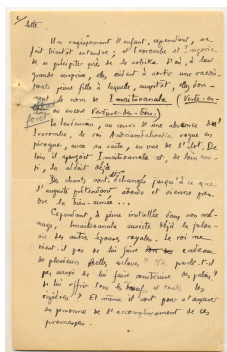 Un vagissement d'enfant, cependant, se
fait bientôt entendre ; et Ivorombe et
se précipiter près de la sobika. Mais, à leur
grande surprise, elles eurent à sortir une ravis-
sante jeune fille à laquelle, aussitôt, elles don-
nent le nom de Imaitsoanala (Verte-en-
forêt
ou encore Verdure-des-bois).
Le lendemain, au cours d'une absence de
Ivorombe, le roi Andriambahoaka vogue en
pirogue, avec sa suite, en vue de l'îlot. De
loin il aperçoit Imaitsoanala et, de loin aus-
si, la
Des chants sont échangés jusqu'à ce que
l'auguste prétendant aborde et vienne pren-
dre la bien-aimée...
Cependant, à peine installée dans son mé-
nage, Imaitsoanala suscite déjà la jalou-
sie des autres épouses royales. Le roi ne
vient-il pas de lui faire cadeau
de plusieurs belles esclaves ? Ne parle-t-il
pas aussi de lui faire construire des palais,
de lui offrir tous les bœufs et toutes les
rizières ? Et même il sort pour s'assurer
en personne de l'accomplissement de ces
promesses.